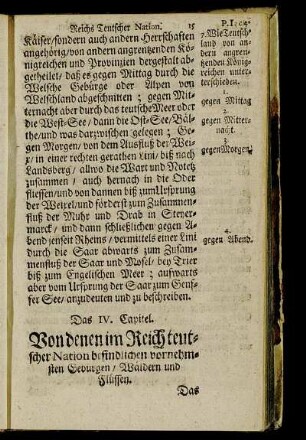 Reichs Teutscher Nation. 15
Käiser/sondern auch andern Herrschaften
angehörig/von andern angrenzenden Kö-
nigreichen und Provinzien dergestalt ab-
getheilet/ daß es gegen Mittag durch die
Welsche Gebürge oder Alpen von
Welschland abgeschnitten; gegen Mit-
ternacht aber durch das teutsche Meer oder
die West-See/ dann die Ost-See/Bäl-
the/und was darzwischen gelegen; Ge-
gen Morgen/ von dem Ausfluß der Wei-
x/ in einer rechten gerathen Lini/ biß nach
Landsberg/ allwo die Wart und Notetz
zusammen/ auch hernach in die Oder
fliessen/und von dannen biß zum Ursprung
der Weixel/und förderst zum Zusammen-
fluß der Muhr und Drab in Steyer-
marck/ und dann schließlichen gegen A-
bend jenseit Rheins/ vermittels einer Lini
durch die Saar abwarts zum Zusam-
menfluß der Saar und Mosel/ bey Trier
biß zum Engelischen Meer; aufwarts
aber vom Ursprung der Saar zum Genf-
fer See/ anzudeuten und zu beschreiben.
7. Wie Teutsch-
land von an-
dern angren-
henden König-
reichen unter-
schieden.
1.
gegen Mittag
2.
gegen Mitter-
nacht.
3.
gegen Morgen.
4.
gegen Abend.
Das IV. Capitel.
Von denen im Reich teut-
scher Nation befindlichen vornehm-
sten Geburgen/ Wäldern und
Flüssen.
Das